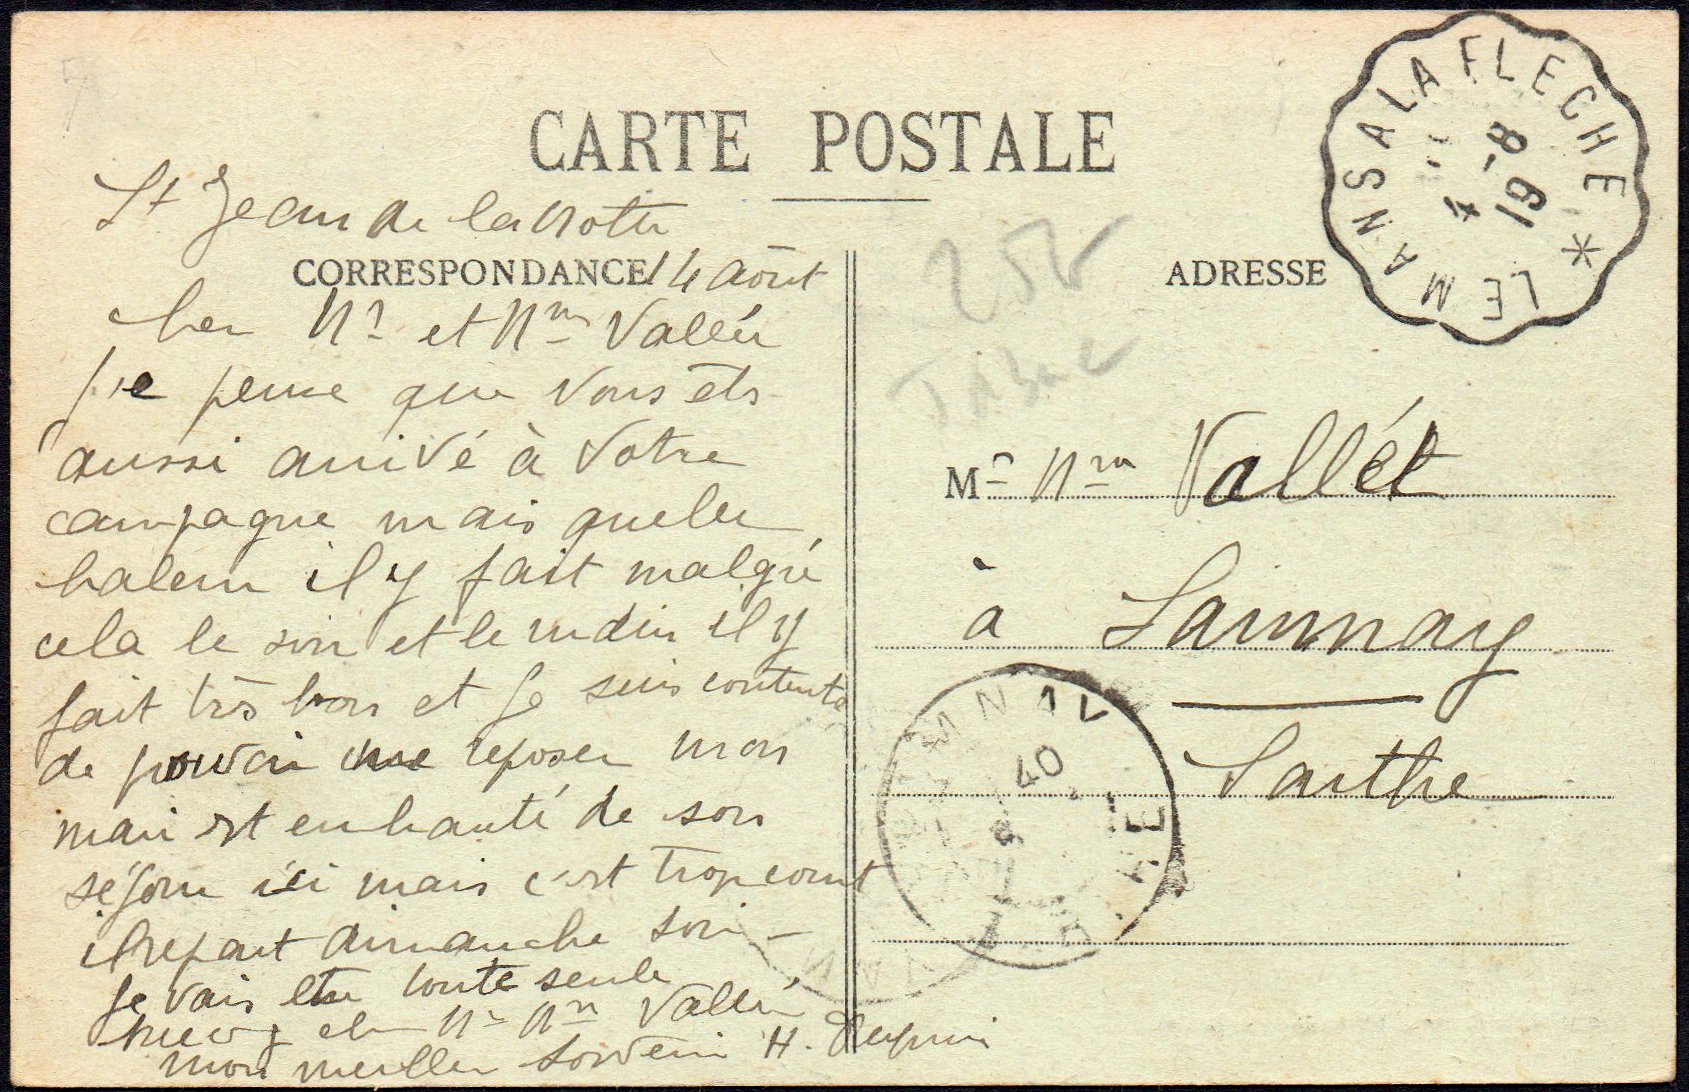 CARTE POSTALE
St Jean de la Motte
CORRESPONDANCE 14 Août
cher Mr et Mme Vallée
Je pense que vous êts
aussi arrivé à votre
campagne mais quelle
chaleur il y fait malgré
cela le soir et le matin il y
fait très bon et je suis contente
de pouvoir me reposer mon
mari est enchanté de son
séjour ici mais c'est trop court
il repart dimanche soir
je vais être toute seule
recevez cher Mr Mme Vallée
mon meiller souvenir H.
ADRESSE
Mr Mme Vallét
à Lamnay
Sarthe
LE MANS A LA FLECHE
4 -8
19
252
Tabac
LAMNAY
40
SARTHE